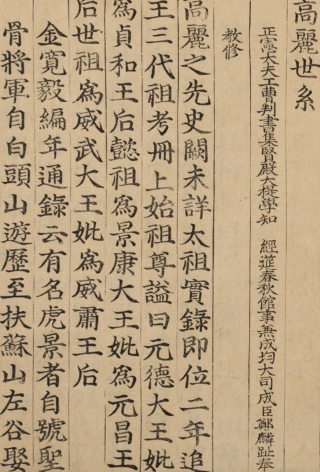 高麗世系
正憲大夫工曹判書集賢殿大提學知 經筵春秋館事兼成均大司成臣鄭麟趾奉
敎修
高麗之先史闕未詳太祖實錄即位二年追
王三代祖考冊上始祖尊謚曰元德大王妣
爲貞和王后懿祖爲景康大王妣爲元昌王
后世祖爲威武大王妣爲威肅王后
金寬毅編年通錄云有名虎景者自號聖
骨將軍自白頭山遊歷至扶蘇山左谷娶